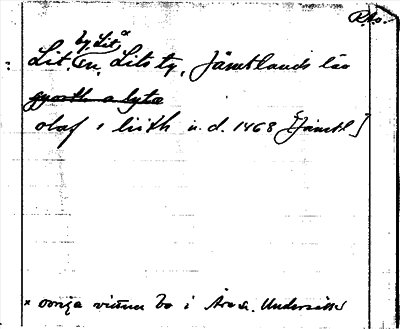 Rao.
by Lit x
Lit. En. Lits ty, Jämtlands län
olaf i liith u.d. 1468 [Jämtl]
x övriga vittnen bo i Ås o. Undersåker